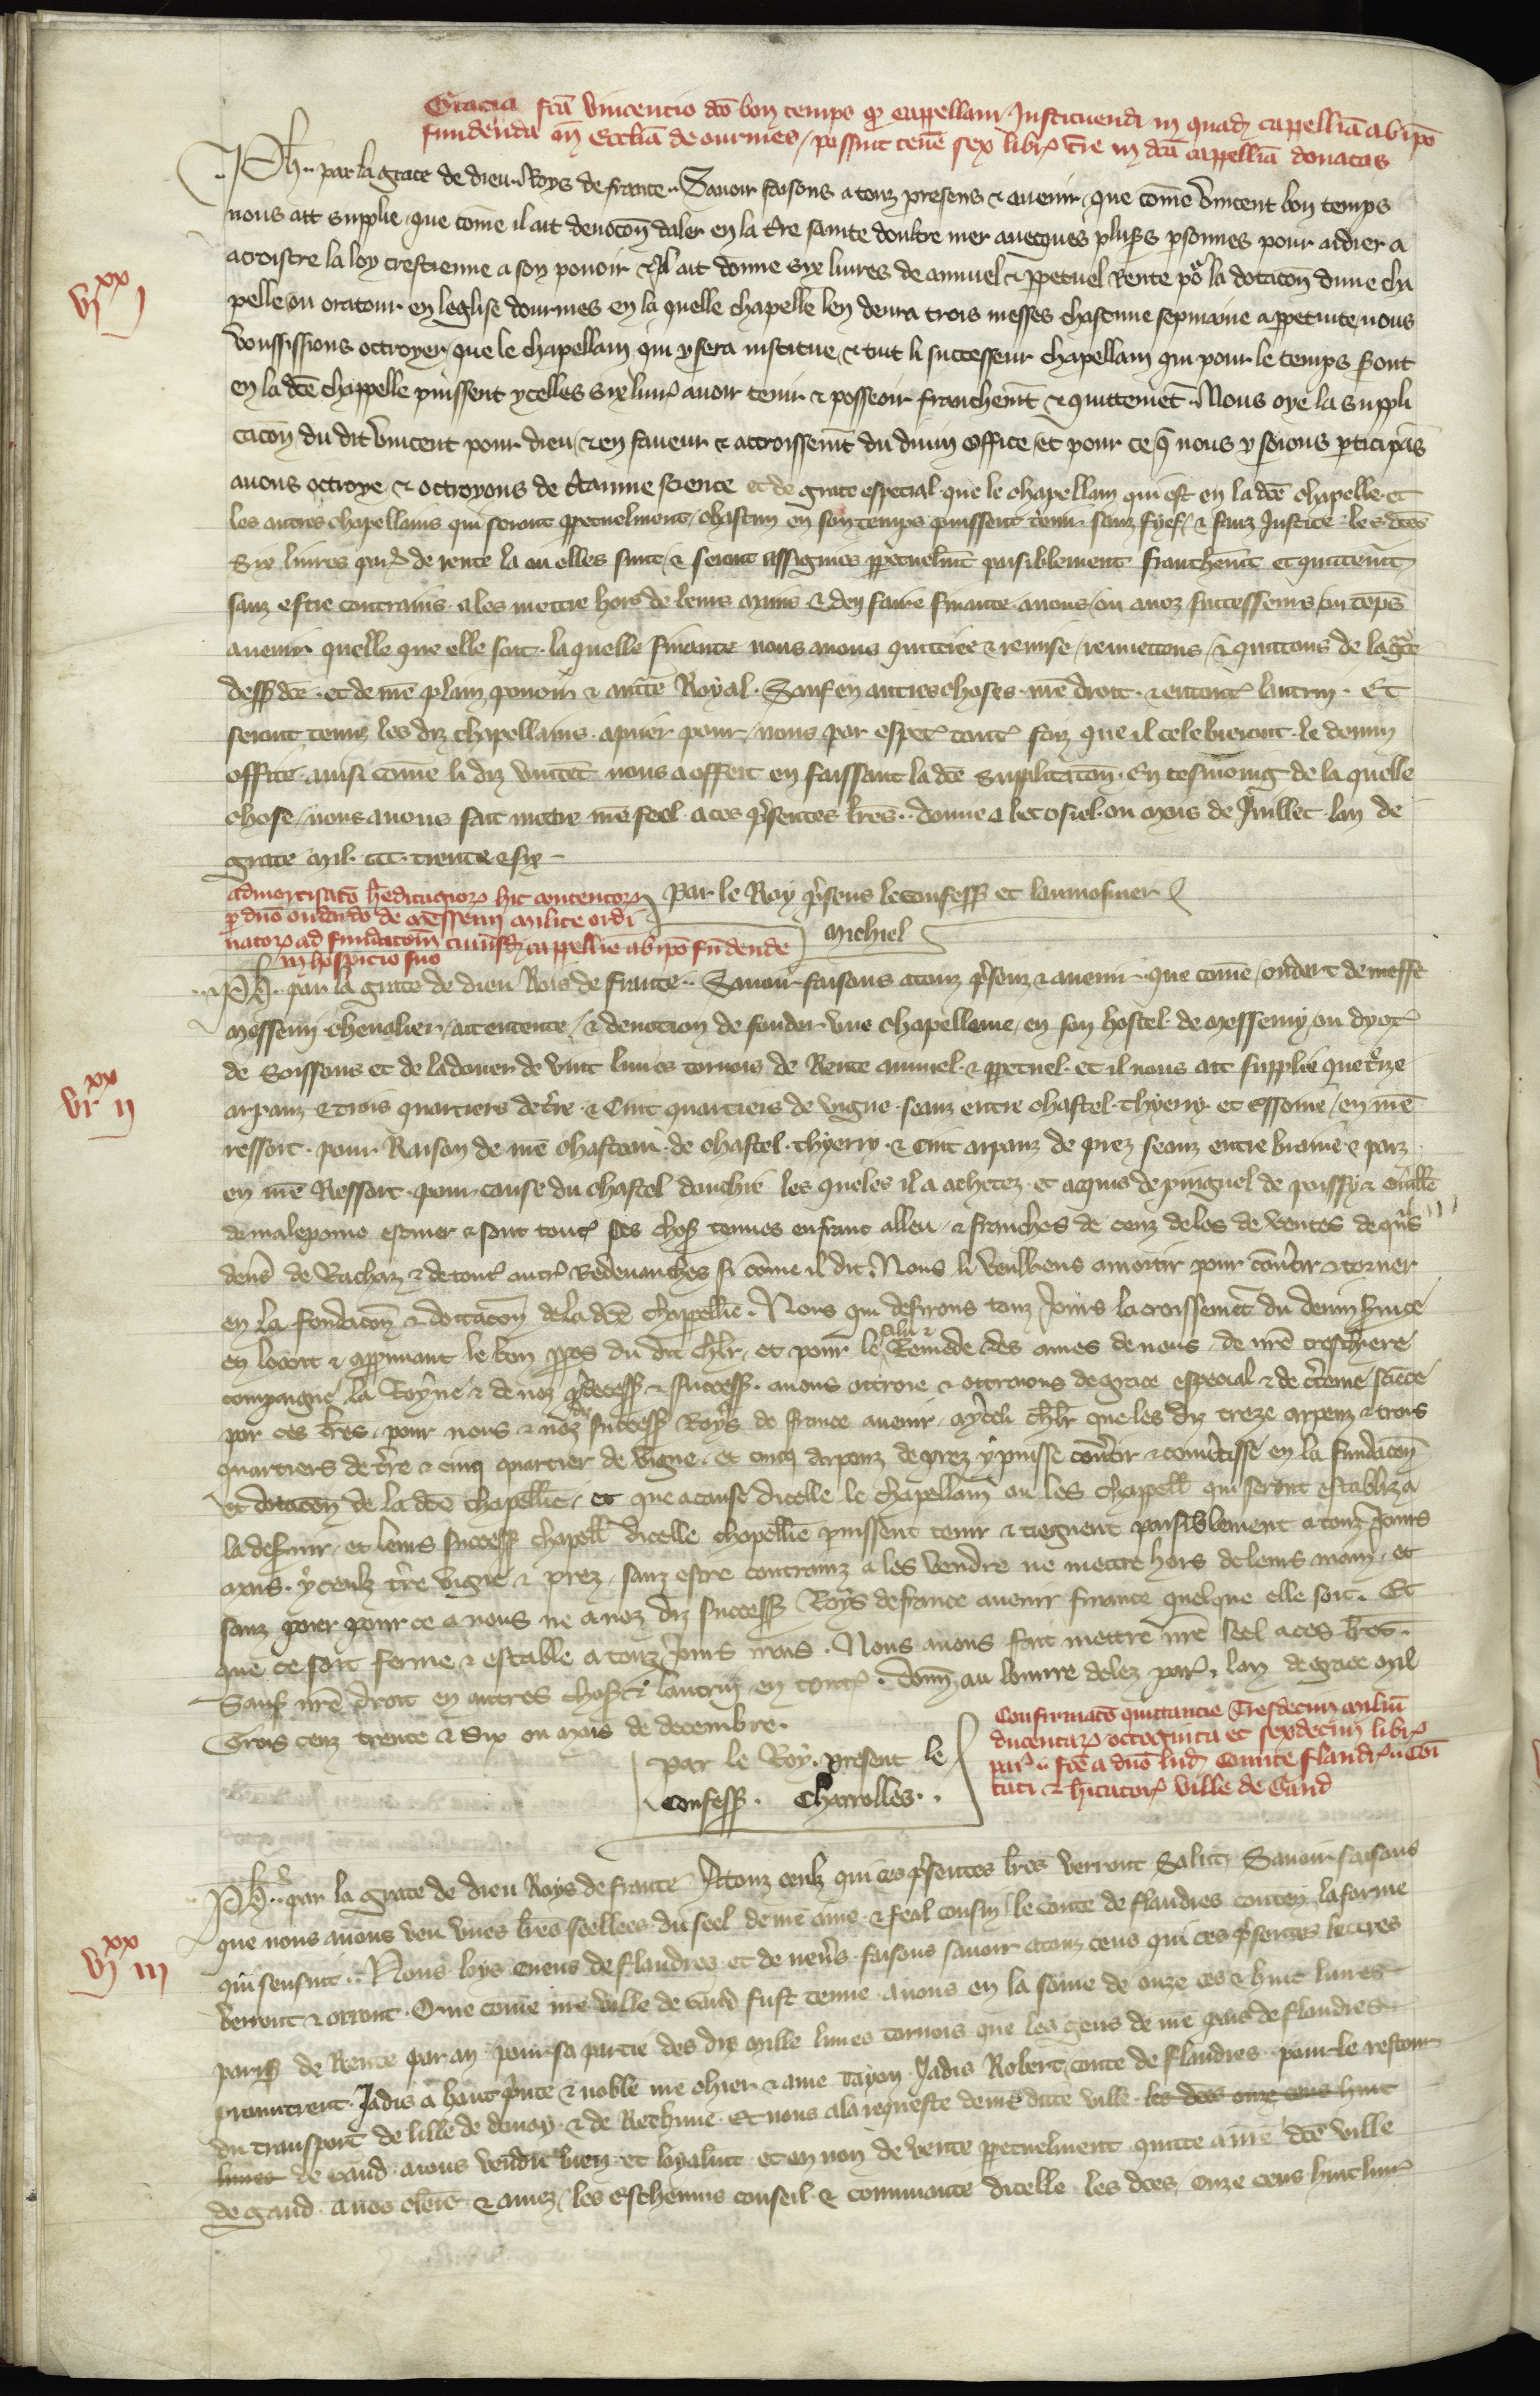 Gracia fcā Vincencio dcō bon temps qz cappellani Instituendi in quadā cappelliā ab ipō
fundenda in Ecclīa de ourmes / possint tenē sex libr t̄re in dcā cappelliā donatas
Ph̄.. par la grace de dieu Roys de france.. Sauoir faisons a touz presens & auenir, que come Vincent bon temps
nous ait supplie, que cōme il ait deuocōn daler en la t̄re sainte doultre mer auecques plus̄s p̄sonnes pour aidier a
acroistre la loy crestienne a son pouoir & il ait donne six liures de annuel & ppetuel Rente po la dotacōn dune cha
vjxx j
pelle ou oratour en leglise dourmes en la quelle chapelle len deura trois messes chascune sepmaine a ppetuite / nous
voussissions octroyer, que le chapellain qui y sera institue, & tuit li successeur chapellain qui pour le temps s̄ont
en la dcē chappelle puissent ycelles six liur̄ auoir tenir & posseoir franchem̄t & quittemēt.. Nous oye la suppli
cacōn du dit Vincent pour dieu, & en faueur & accroissem̄t du diuin office, et pour ce q̄ nous y soions p̄ticipās
auons octroye & octroyons de c̄tainne science et de grace especial que le chapellain qui est en la dcē chapelle et
les autres chapellains qui seront ppetuelment, chascun en son temps puissent tenir sanz fyef, & sanz Justice les dcēs
Six liures par̄ de rente la ou elles sunt & seront assignees ppetuelm̄t paisiblement franchem̄t et quitem̄t
sanz estre contrains a les mettre hors de leurs mains & den faire finance a nous / ou a noz successeurs / ou tēps
auenir quelle que elle soit. laquelle finance nous auons quittiee & remise, remettons, & quittons de la gc̄e
dess dcē. et de n̄re plain pouoir & auctē Royal. Sauf en autres choses n̄re droit. & en tout lautrui. Et
seront tenuz les diz chapellains a prier pour nous par esp̄ec̄ tout̄ foiz que il celebreront le deuin
office ainsi come li diz vincēt nous a offert en faissant la dcē supplicacōn. En tesmoing de la quelle
chose, nous auons fait mettre n̄re seel a ces p̄sentes lr̄es.. donne a becoisel ou mois de Juillet lan de
grace mil. ccc. trente & six
Par le Roy p̄sens le confess et laumosnier
Michiel
admortisatō h̄editagiorz hic contentorz
p dnō oudardo de Messemi milite ordi
natorz ad fundatōem cuiusdā cappellie ab ipō fūdende
in hospicio suo
Ph̄.. par la grace de dieu Rois de france.. Sauoir faisons a touz p̄senz & auenir. que come, oudart de messe
Messemi cheualier, ait entente, & deuotion de fonder une chapellenie, en son hostel de Messemy ou dyoc̄
de Soissons et de la douer de vint liures tornois de Rente annuel & ppetuel et il nous ait supplie que treze
vjxx ij
arpanz & trois quartiers de t̄re & Cinc quartiers de vigne seanz entre chastel thyerry et Essome, en n̄re
ressort. pour Raison de n̄re chasteau de chastel thyerry & Cinc arpanz de prez seanz entre braine & parz
en n̄re Ressort pour cause du chastel douchie les queles il a achetez et acquis de pinguel de poissy & Guill̄e
de malepome escuier & sont tout̄ ses chos̄ tenues en franc alleu & franches de cenz de los de ventes de qn̄s
deniers de Rachaz & de tout̄ autr̄ Redeuances si cōme il dit. Nous li veuillens amortir pour cōu̇tir & torner
en la fondacōn & dottacōn de la dcē chappellīe. Nous qui desirons touz Jours lacroissem̄t du deuin s̄uice
en loant & approuuant le bon ppos du dit chl̄r, et pour le salu & Remede des ames de nous, de n̄re treschiere
compaigne la Roÿne & de noz p̄decess & success. auons ottroie & ottroions de grace especial & de c̄teine sciēce
par ces l̄res. pour nous & noz diz success Roys de france auenir. Ay dcēt chl̄r que les diz treze arpenz & trois
quartiers de t̄re & cinq quartier de vigne. et cincq arpenz de prez y puisse cōu̇tir & cōu̇tisse en la fundacōn
et dotacōn de la dcē chapellīe, et que a cause dicelle le chapellain ou les chappell̄ qui seront establiz a
la deseruir, et leurs success chapell̄ dicelle chapellīe puissent tenir & tiegnent paisiblement a touz Jours
mais. yceulx t̄re vigne & prez. sanz estre contrainz a les vendre ne mettre hors de leurs main, et
sanz paier pour ce a nous ne a noz diz success Roys de france auenir finance quelque elle soit. Et
que ce soit ferme & estable a touz Jours mais. Nous auons fait mettre n̄re seel a ces l̄res.
Sauf n̄re droit en autres chos̄ & lautrui en tout̄. donn̄ au louure delez par̄, lan de grace mil
Trois cenz trente & Six ou mois de decembre.
Par le Roy. present le
Confess. Charrolles..
Confirmacō quittancie Tresdecim miliū
ducentarz octoginta et sexdecim libr̄
par̄.. fcē a dnō lud̄ Comite Fland̄r.. Cōi
tati & hītatorz ville de Gand
Ph̄.. par la grace de dieu Roys de france A touz ceulz qui ces p̄sentes l̄res verront Salut. Sauoir faisons
que nous auons veu vnes l̄res seellees du seel de n̄re ame & feal cousin le conte de flandres conten̄ la forme
qui sensuit.. Nous loys cuens de flandres et de neu̇s. faisons sauoir a touz ceus qui ces p̄sentes lettres
vjxx iij
verront & orront. Que come n̄re ville de Gand fust tenue a nous en la some de onze cēs & huit liures
paris̄ de Rente par an pour sa partie des dis mille liures tornois que les gens de n̄re pais de flandres
promirent Jadis a haut p̄nce & noble n̄re chier & ame tayon Jadis Robert, conte de flandres. pour le restour
du transport de lille de douay & de Bethune. Et nous a la requeste de n̄re ditte ville les dcēs onze cens huit
liures de Gand auons vendu bien et loyalm̄t et en non de vente ppetuelment quitte a n̄re dcē ville
de gand a nos chiers & amez, les Escheuins conseil & commīaute dicelle les dcēs onze cens huit liur̄